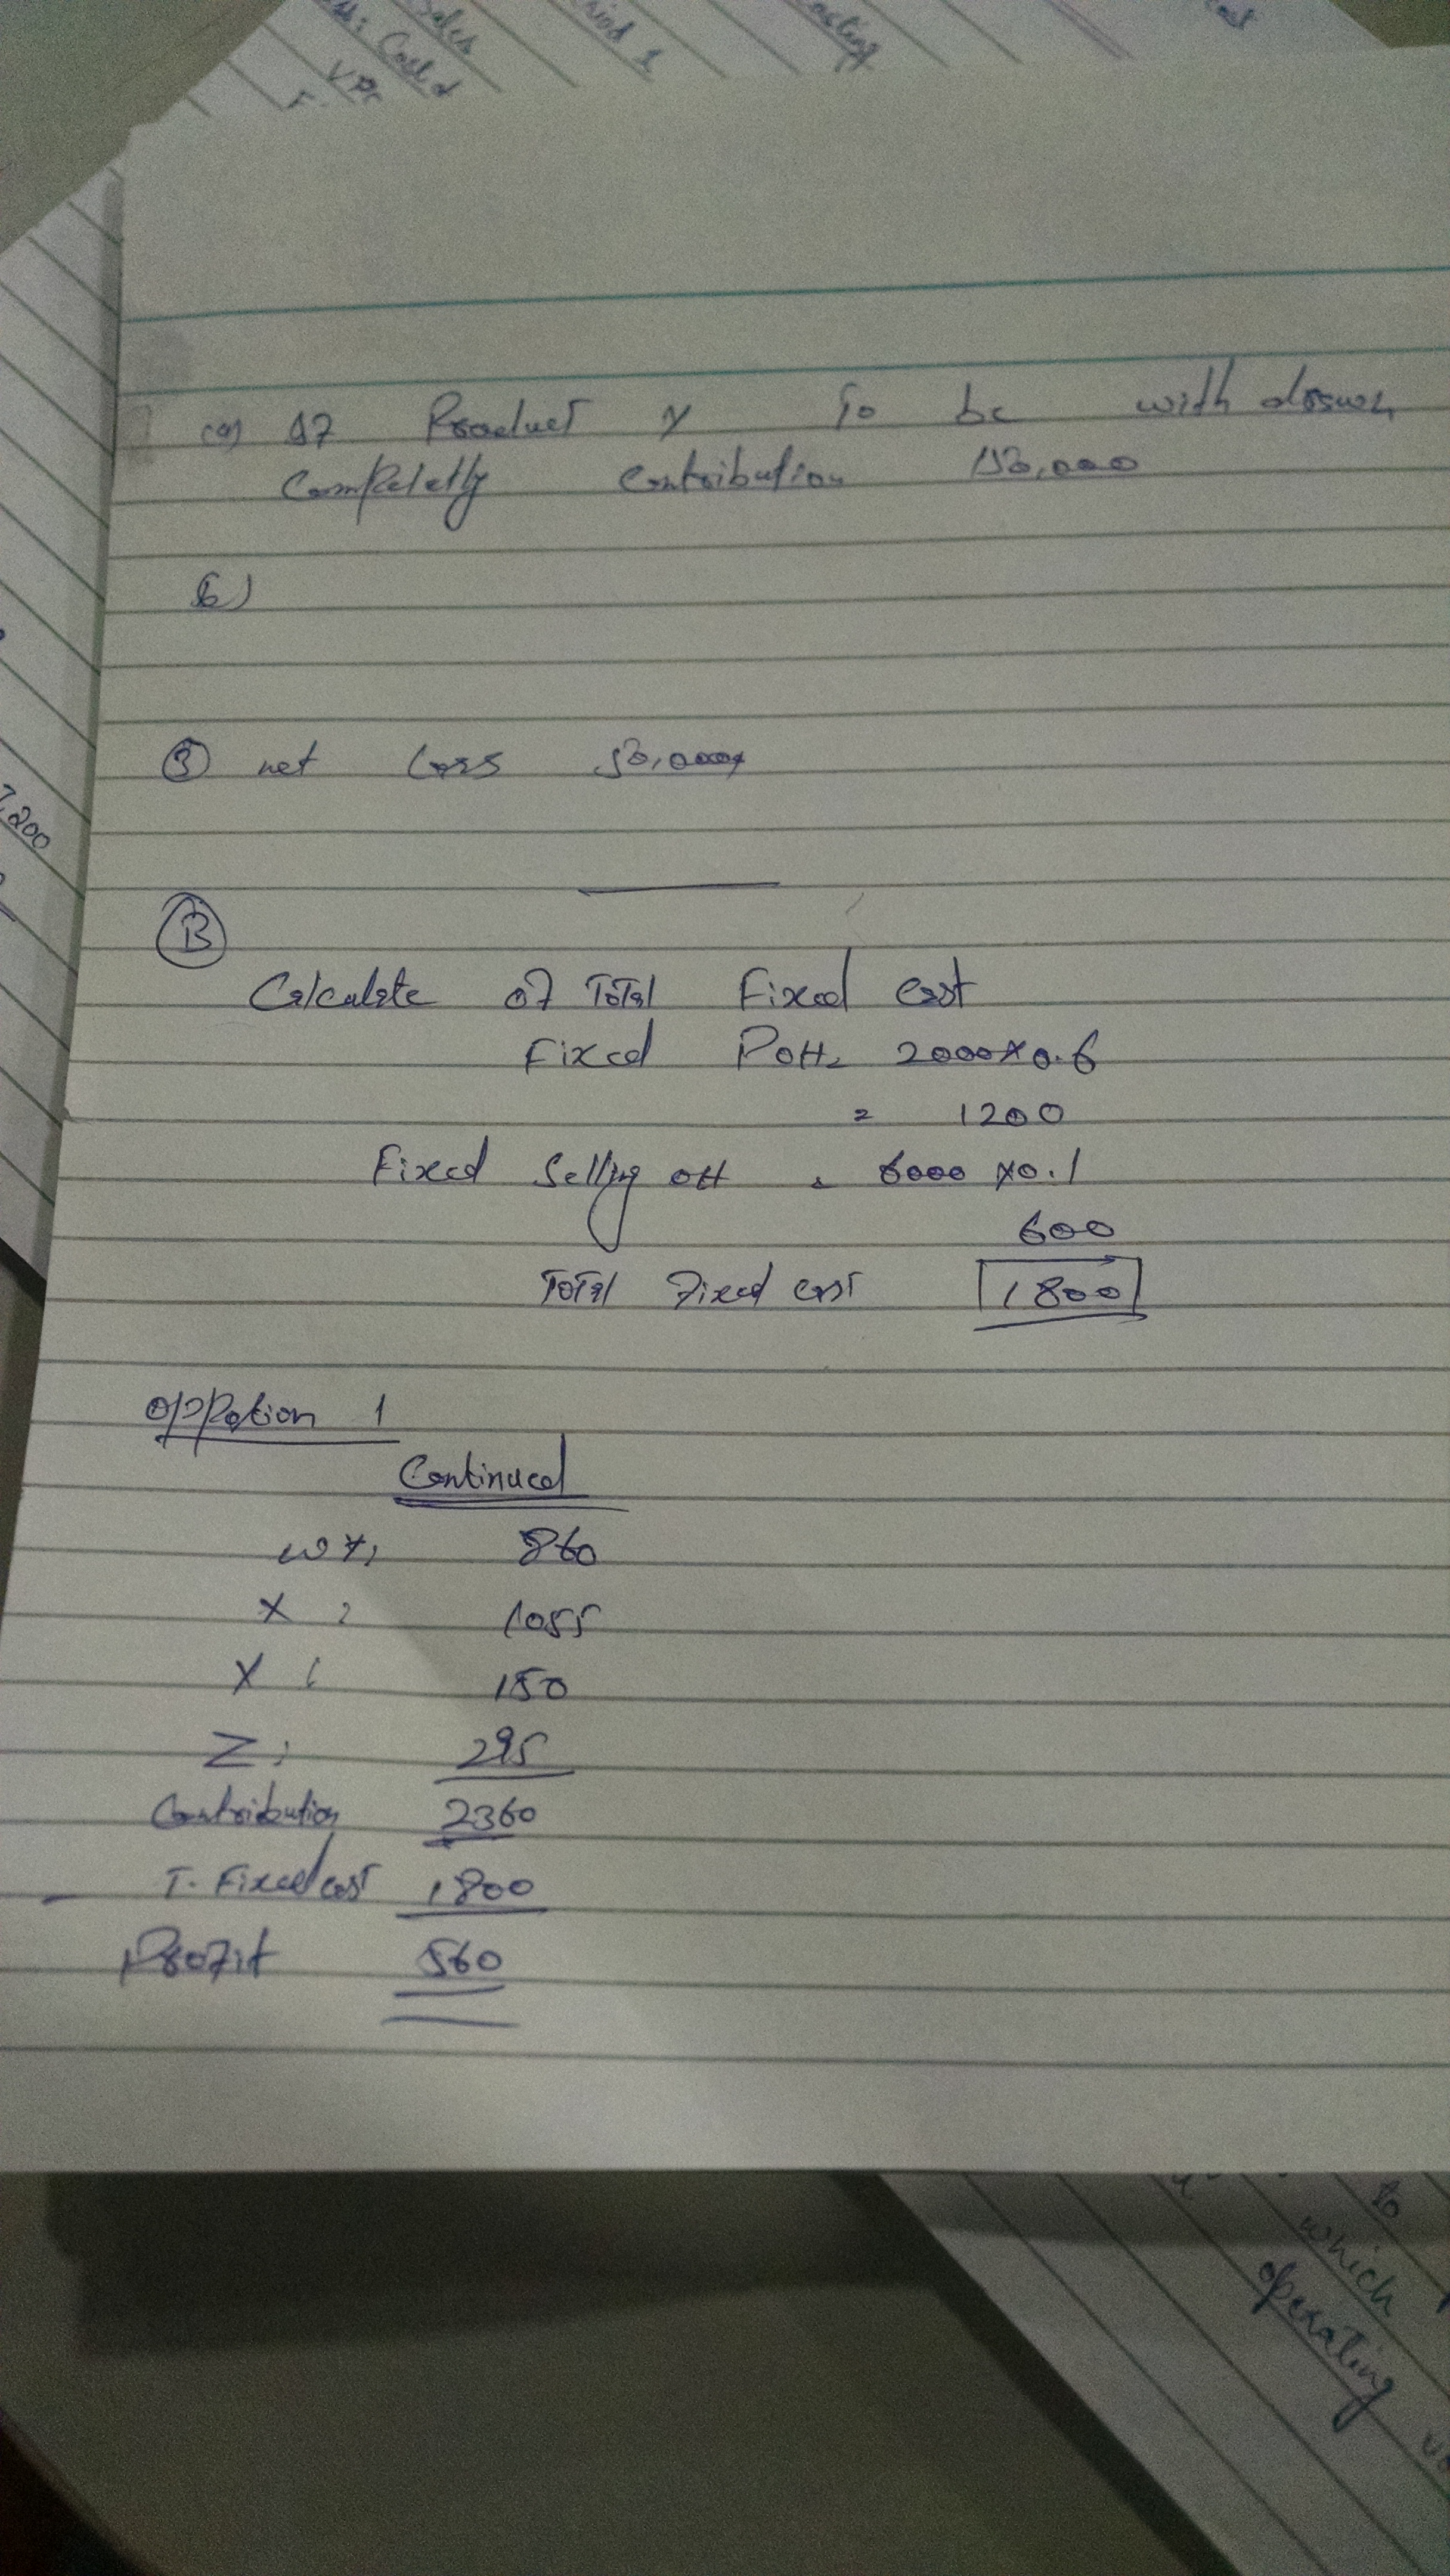 sales
Cost
riod 1
osting
Cost
VPC
7,200
(a) If Product Y To be with drawn
Completly Contribution 150,000
b)
③ net loss 50,000
Ⓑ
Calculate of Total Fixed Cost
Fixed POH = 2000 × 0.6
= 1200
Fixed Selling OH = 6000 × 0.1
600
Total Fixed cost 1800
Oppotion 1
Continued
W 860
X : 1055
Y : 150
Z : 295
Contribution 2360
- T. Fixed cost 1800
Profit 560
to
which
operating